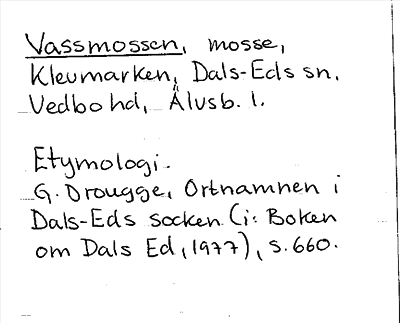 Vassmossen, mosse,
Kleumarken, Dals-Eds sn,
Vedbo hd, Älvsb. l.
Etymologi.
G. Drougge, Ortnamnen i
Dals-Eds socken (i: Boken
om Dals Ed, 1977), s. 660.